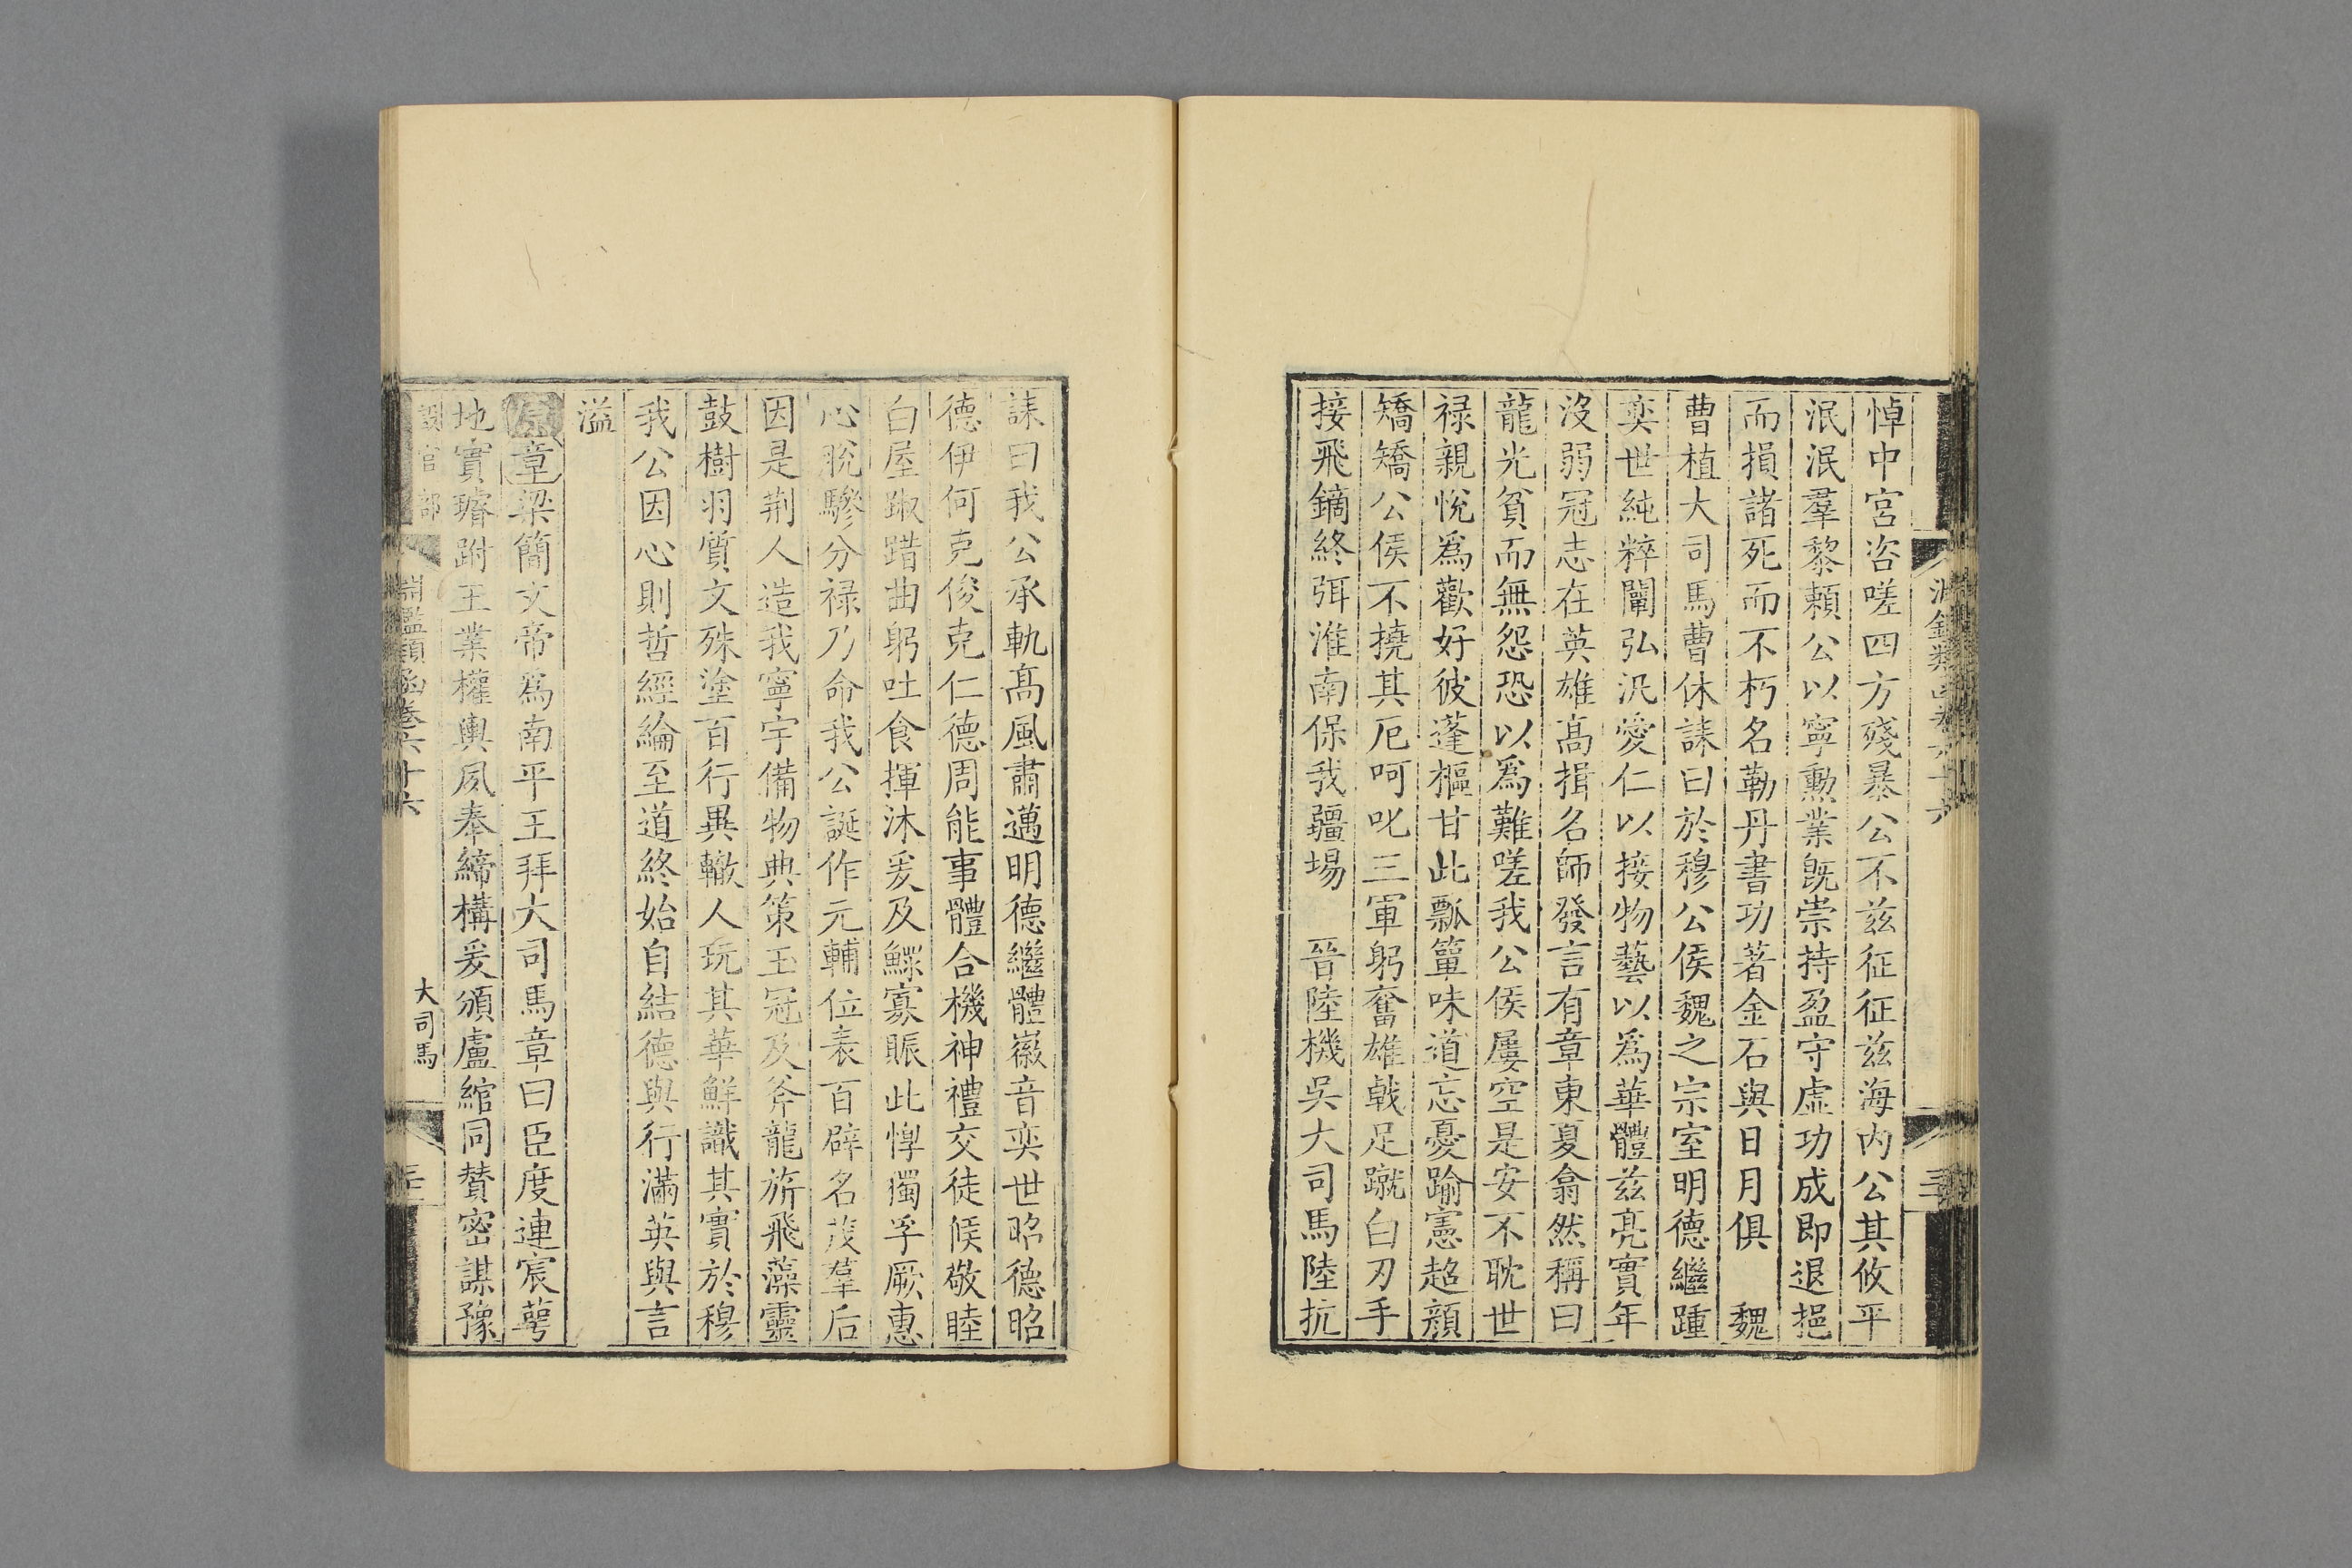 悼中宮咨嗟四方殘暴公不茲征征茲海内公其攸平
泯泯羣黎賴公以寧勲業旣崇持盈守虛功成即退挹
而損諸死而不朽名勒丹書功著金石與日月俱　魏
曹植大司馬曹休誄曰於穆公侯魏之宗室明德繼踵
奕世純粹闡弘汎愛仁以接物藝以爲華體茲亮實年
沒弱冠志在英雄高揖名師發言有章東夏翕然稱曰
龍光貧而無怨恐以爲難嗟我公侯屢空是安不耽世
禄親悅爲歡好彼蓬樞甘此瓢簞味道忘憂踰憲超顔
矯矯公侯不撓其厄呵叱三軍躬奮雄戟足蹴白刃手
接飛鏑終弭淮南保我疆場　晉陸機吳大司馬陸抗
誄曰我公承軌高風肅邁明德繼體徽音奕世昭德昭
德伊何克俊克仁德周能事體合機神禮交徒候敬睦
白屋踧踖曲躬吐食揮沐爰及鰥寡賑此惸獨孚厥惠
心脫驂分禄乃命我公誕作元輔位表百辟名茂羣后
因是荆人造我寧宇備物典策玉冠及斧龍旂飛藻靈
鼓樹羽質文殊塗百行異轍人玩其華鮮識其實於穆
我公因心則哲經綸至道終始自結德與行滿英與言
溢
原章梁簡文帝爲南平王拜大司馬章曰臣度連宸萼
地實璿跗王業權輿夙奉締構爰頒盧綰同贊密謀豫
設官部　淵鑑類函卷六十六　大司馬